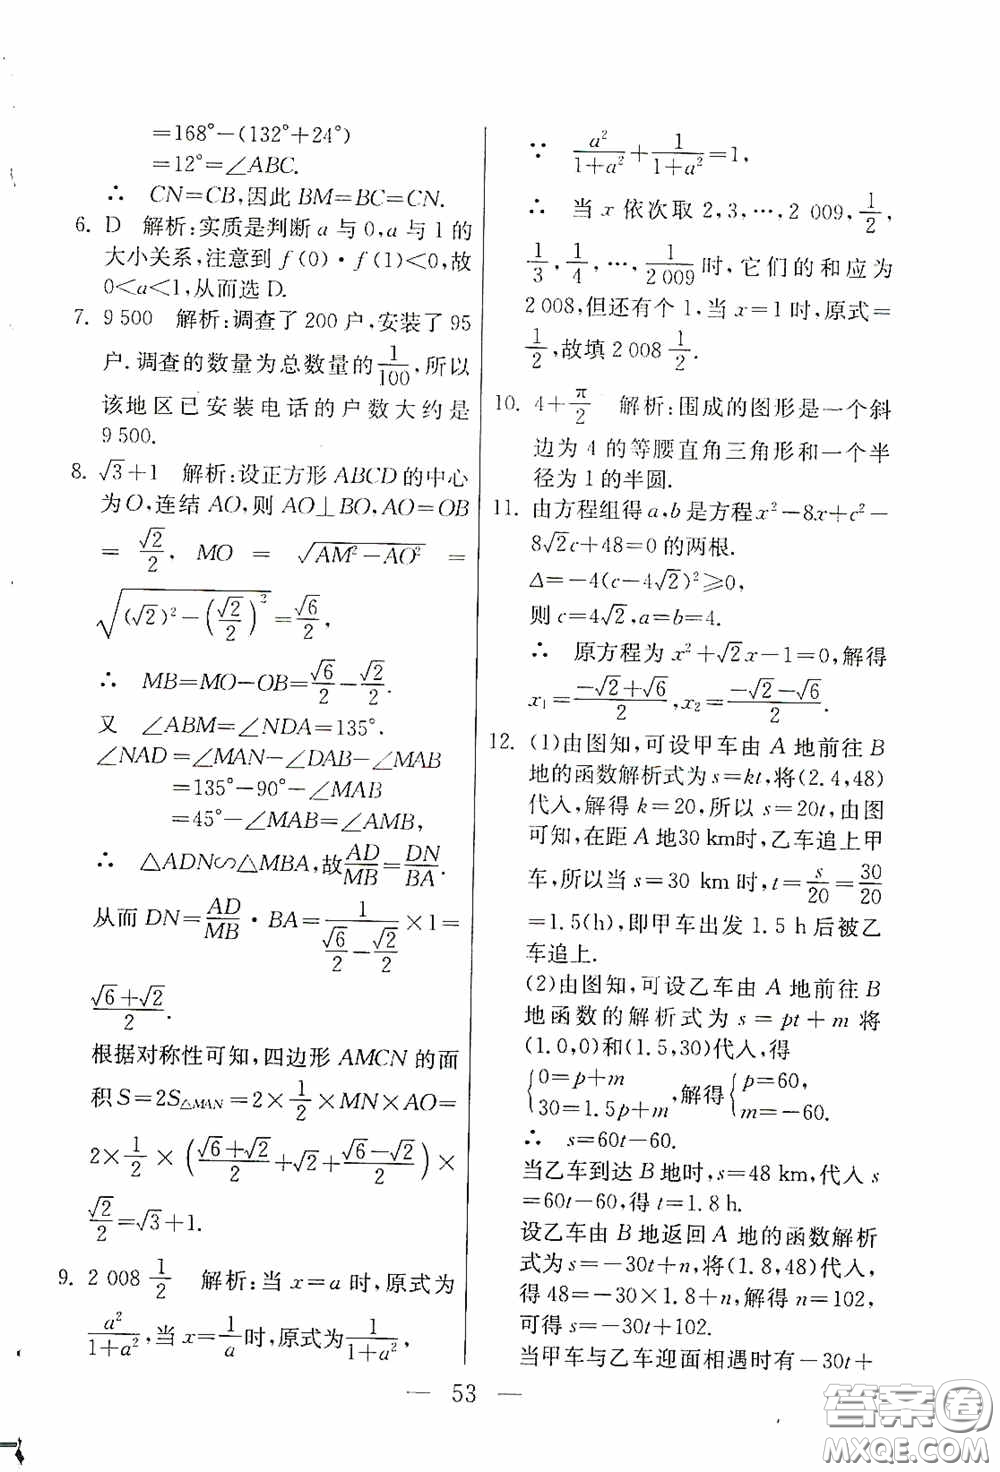 =168°−(132°+24°)
=12°=∠ABC.
∴ CN=CB,因此 BM=BC=CN.
6. D 解析:实质是判断 a 与 0,a 与 1 的
大小关系,注意到 f(0)·f(1)<0,故
0<a<1,从而选 D.
7. 9 500 解析:调查了 200 户,安装了 95
户.调查的数量为总数量的 1/100,所以
该地区已安装电话的户数大约是
9 500.
8. √3+1 解析:设正方形 ABCD 的中心
为 O,连结 AO,则 AO⊥BO,AO=OB
= √2/2, MO = √(AM²−AO²) =
√((√2)²−(√2/2)²)=√6/2,
∴ MB=MO−OB=√6/2−√2/2.
又 ∠ABM=∠NDA=135°.
∠NAD=∠MAN−∠DAB−∠MAB
=135°−90°−∠MAB
=45°−∠MAB=∠AMB,
∴ △ADN∽△MBA,故AD/MB=DN/BA.
从而 DN=AD/MB·BA=1/(√6/2−√2/2)×1=
(√6+√2)/2.
根据对称性可知,四边形 AMCN 的面
积 S=2S△MAN=2×1/2×MN×AO=
2×1/2×((√6+√2)/2+√2+(√6−√2)/2)×
√2/2=√3+1.
9. 2 008 1/2 解析:当 x=a 时,原式为
a²/(1+a²),当 x=1/a时,原式为1/(1+a²),
∵ a²/(1+a²)+1/(1+a²)=1,
∴ 当 x 依次取 2,3,…,2 009,1/2,
1/3,1/4,…,1/2 009时,它们的和应为
2 008,但还有个 1,当 x=1 时,原式=
1/2,故填 2 008 1/2.
10. 4+π/2 解析:围成的图形是一个斜
边为 4 的等腰直角三角形和一个半
径为 1 的半圆.
11. 由方程组得 a,b 是方程 x²−8x+c²−
8√2c+48=0 的两根.
Δ=−4(c−4√2)²≥0,
则 c=4√2,a=b=4.
∴ 原方程为 x²+√2x−1=0,解得
x₁=(−√2+√6)/2,x₂=(−√2−√6)/2.
12. (1)由图知,可设甲车由 A 地前往 B
地的函数解析式为 s=kt,将(2.4,48)
代入,解得 k=20,所以 s=20t,由图
可知,在距 A 地30 km时,乙车追上甲
车,所以当 s=30 km 时,t=s/20=30/20
=1.5(h),即甲车出发 1.5 h 后被乙
车追上.
(2)由图知,可设乙车由 A 地前往 B
地函数的解析式为 s=pt+m 将
(1.0,0)和(1.5,30)代入,得
{0=p+m 30=1.5p+m,解得{p=60, m=−60.
∴ s=60t−60.
当乙车到达 B 地时,s=48 km,代入 s
=60t−60,得 t=1.8 h.
设乙车由 B 地返回 A 地的函数解析
式为 s=−30t+n,将(1.8,48)代入,
得 48=−30×1.8+n,解得 n=102,
可得 s=−30t+102.
当甲车与乙车迎面相遇时有−30t+
— 53 —
答案圈
MXQE.COM